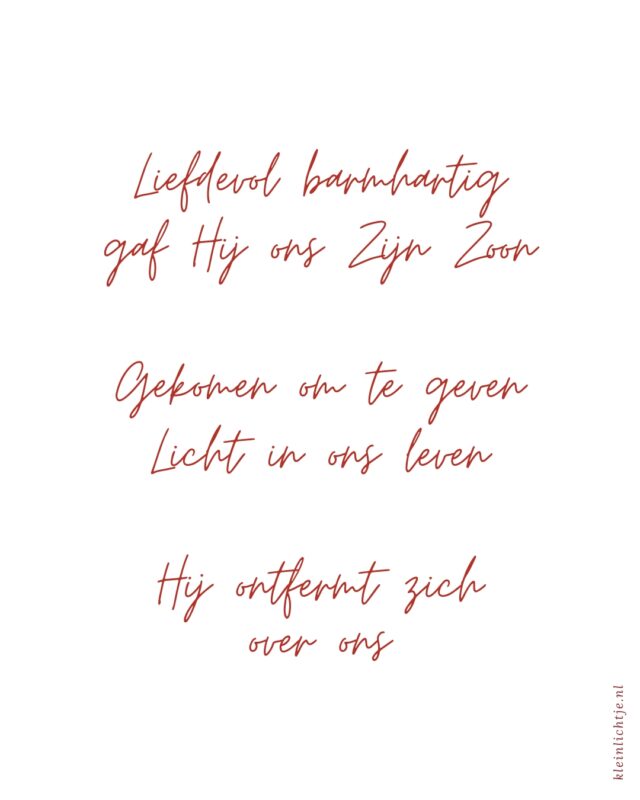 Liefdevol barmhartig
gaf Hij ons Zijn Zoon
Gekomen om te geven
Licht in ons leven
Hij ontfermt zich
over ons
kleinlichtje.nl